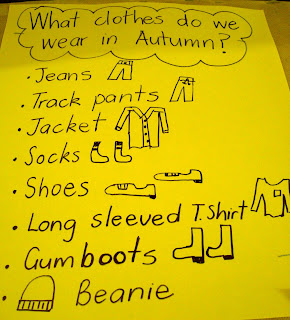 What clothes do we
wear in Autumn?
• Jeans
• Track pants
• Jacket
• Socks
• Shoes
• Long sleeved T.Shirt
• Gumboots
• Beanie